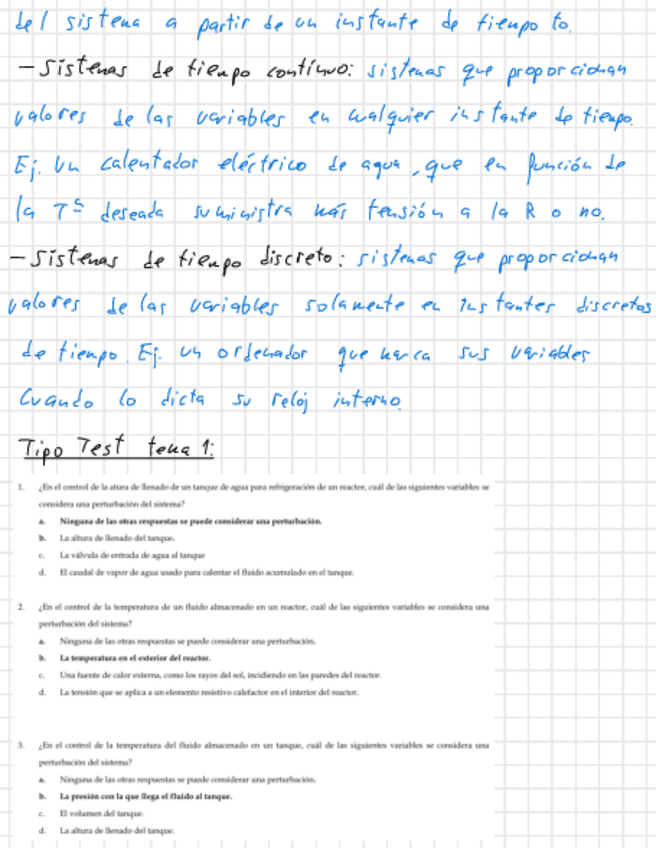 del sistema a partir de un instante de tiempo to.
- Sistemas de tiempo contínuo: sistemas que proporcionan
valores de las variables en cualquier instante de tiempo.
Ej. Un calentador eléctrico de agua, que en función de
la Tª deseada suministra más tensión a la R o no.
- Sistemas de tiempo discreto: sistemas que proporcionan
valores de las variables solamente en instantes discretos
de tiempo. Ej. un ordenador que marca sus variables
cuando lo dicta su reloj interno.
Tipo Test tema 1:
1. ¿En el control de la atura de llenado de un tanque de agua para refrigeración de un reactor, cuál de las siguientes variables se
considera una perturbación del sistema?
a. Ninguna de las otras respuestas se puede considerar una perturbación.
b. La altura de llenado del tanque.
c. La válvula de entrada de agua al tanque
d. El caudal de vapor de agua usado para calentar el fluido acumulado en el tanque.
2. ¿En el control de la temperatura de un fluido almacenado en un reactor, cuál de las siguientes variables se considera una
perturbación del sistema?
a. Ninguna de las otras respuestas se puede considerar una perturbación.
b. La temperatura en el exterior del reactor.
c. Una fuente de calor externa, como los rayos del sol, incidiendo en las paredes del reactor.
d. La tensión que se aplica a un elemento resistivo calefactor en el interior del reactor.
3. ¿En el control de la temperatura del fluido almacenado en un tanque, cuál de las siguientes variables se considera una
perturbación del sistema?
a. Ninguna de las otras respuestas se puede considerar una perturbación.
b. La presión con la que llega el fluido al tanque.
c. El volumen del tanque.
d. La altura de llenado del tanque.